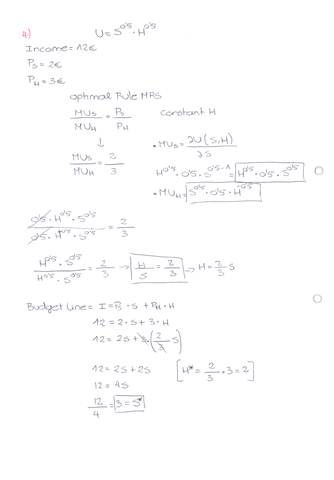 4.) U = S^0'5 · H^0'5
Income = 12€
Ps = 2€
PH = 3€
optimal Rule MRS
MUs/MUH = Ps/PH constant H
↓ • MUs = ∂U(S,H)/∂S
MUs/MUH = 2/3 H^0'5 · 0'5 · S^0'5-1 = H^0'5 · 0'5 · S^-0'5
• MUH = S^0'5 · 0'5 · H^-0'5
0'5 · H^0'5 · S^-0'5 / 0'5 · H^-0'5 · S^0'5 = 2/3
H^0'5 · S^0'5 / H^0'5 · S^0'5 = 2/3 → H/S = 2/3 → H = 2/3 S
Budget Line = I = Ps · S + PH · H
12 = 2 · S + 3 · H
12 = 2S + 3 · (2/3 S)
12 = 2S + 2S [H* = 2/3 · 3 = 2]
12 = 4S
12/4 = 3 = S*